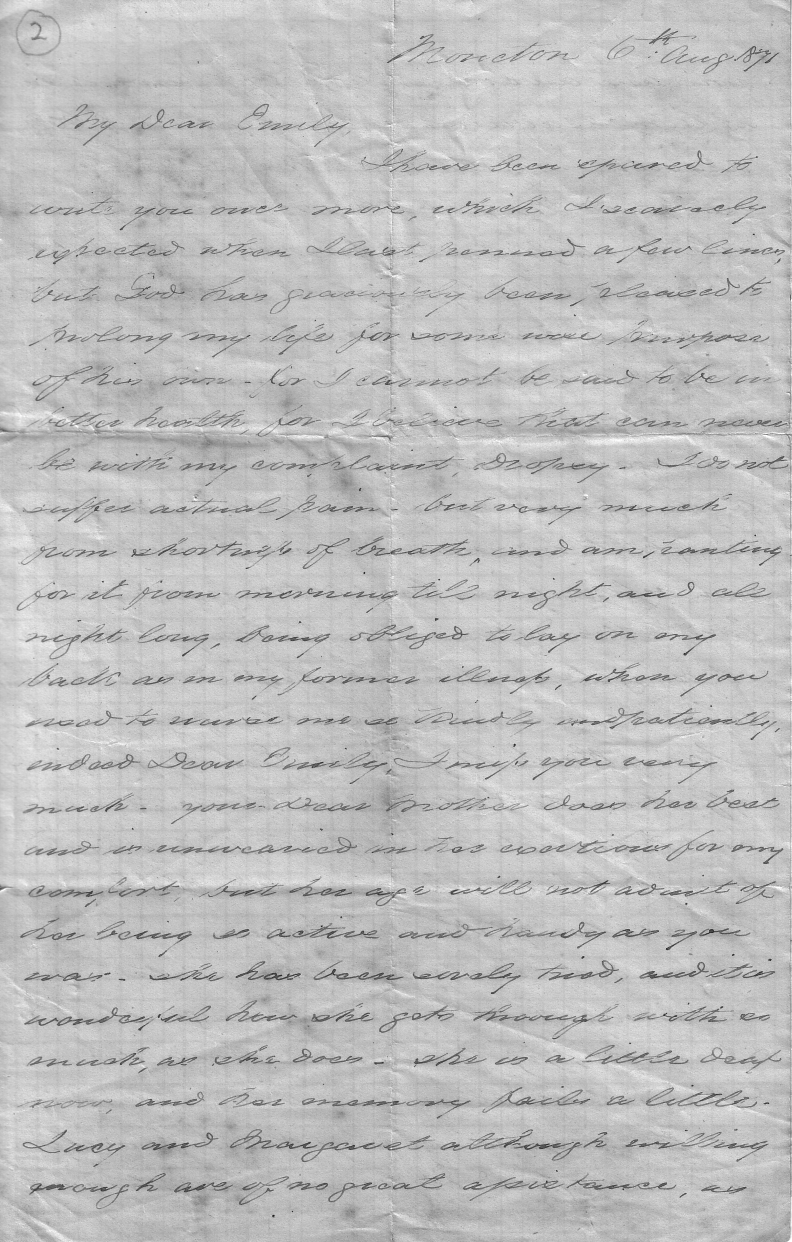 2
Moncton 6th Aug 1871
My Dear Emily
I have been spared to
write you once more, which I scarcely
expected when I last penned a few lines,
but God has graciously been pleased to
prolong my life for some wise purpose
of his own - for I cannot be said to be in
better health, for I believe that can never
be with my complaint, Dropsy - I do not
suffer actual pain - but very much
from shortness of breath, and am panting
for it from morning till night, and all
night long, being obliged to lay on my
back as in my former illness, when you
used to nurse me so kindly and patiently,
indeed Dear Emily, I miss you very
much - your Dear Mother does her best
and is unwearied in her exertions for my
comfort, but her age will not admit of
her being so active and handy as you
was - she has been sorely tried, and it is
wonderful how she gets through with so
much, as she does - she is a little deaf
now, and her memory fails a little -
Lucy and Margaret although willing
enough are of no great assistance, as